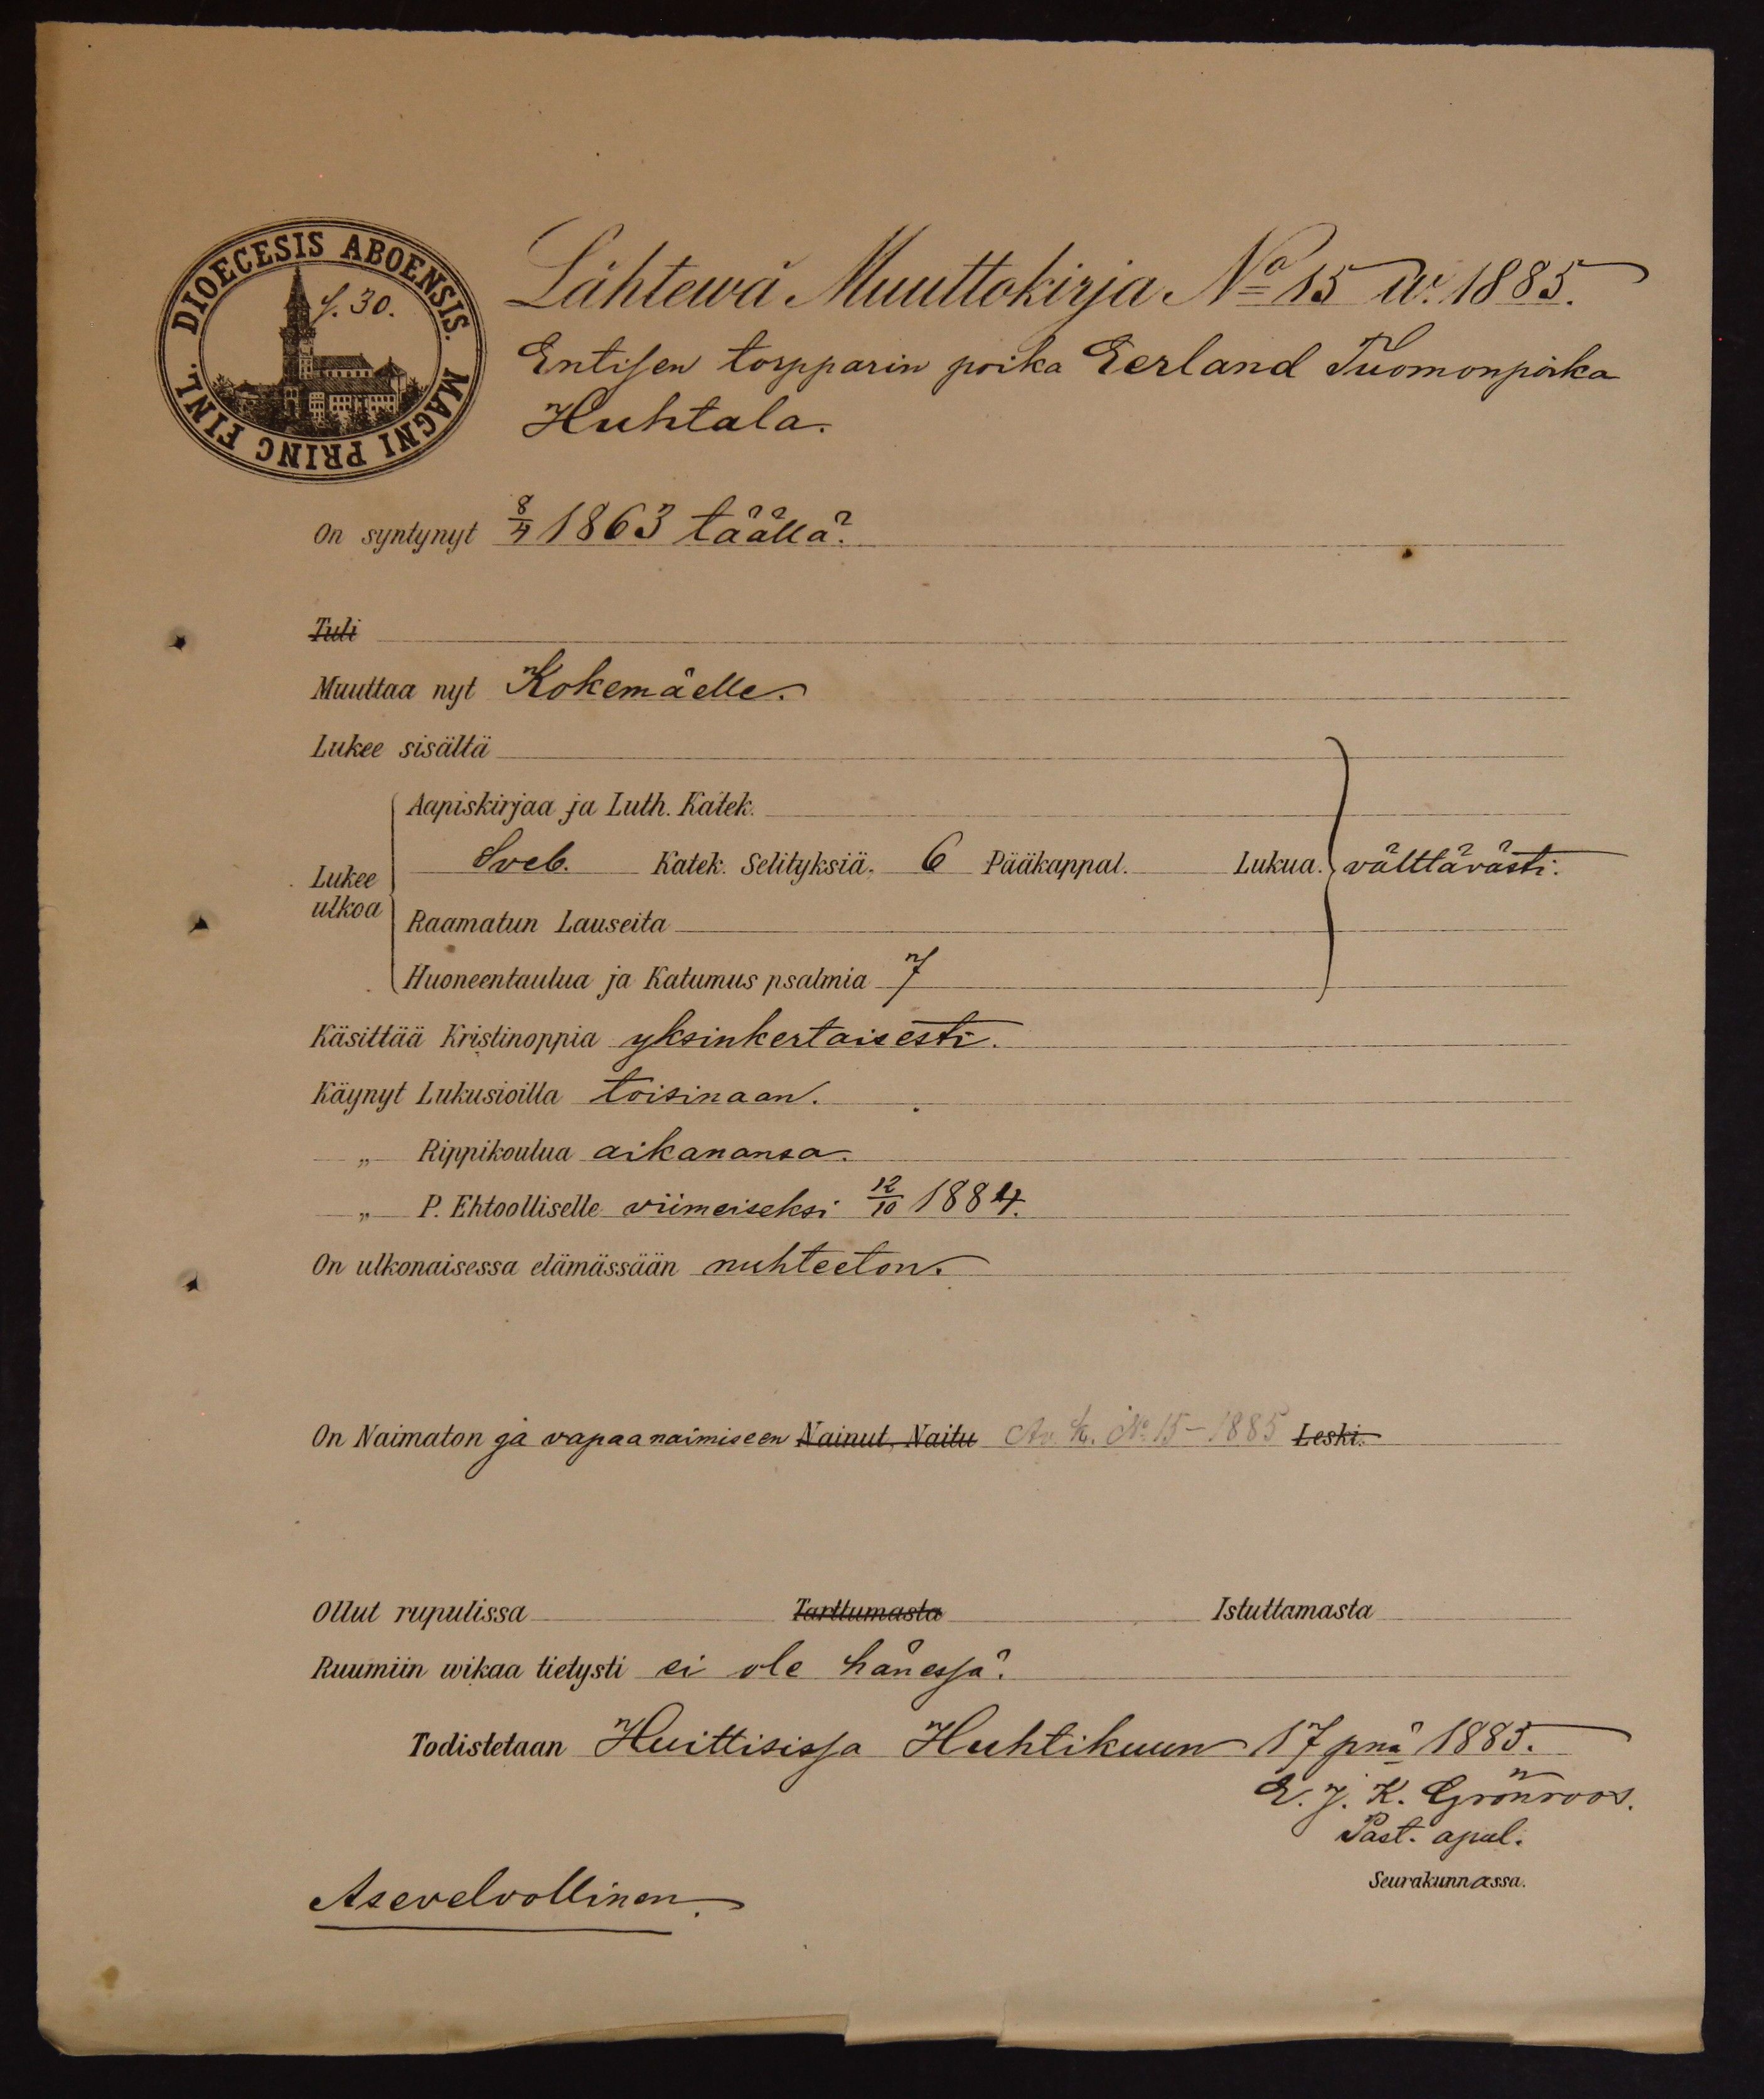 DIOECESIS ABOENSIS. MAGNI PRINC FINL.
S. 30.
Lähtewä Muuttokirja No 15 w. 1885.
Entisen torpparin poika Eerland Tuomonpoika
Huhtala.
On syntynyt 8/4 1863 täällä.
Tuli
Muuttaa nyt Kokemäelle.
Lukee sisältä
Aapiskirjaa ja Luth. Katek.
Lukee ulkoa Sveb. Katek. Selityksiä. 6 Pääkappal. Lukua. välttävästi.
Raamatun Lauseita
Huoneentaulua ja Katumus psalmia 7
Käsittää Kristinoppia yksinkertaisesti.
Käynyt Lukusioilla toisinaan.
„ Rippikoulua aikanansa.
„ P. Ehtoolliselle viimeiseksi 12/10 1884.
On ulkonaisessa elämässään nuhteeton.
On Naimaton ja vapaa naimiseen Nainut, Naitu No 15 - 1885 Leski.
Ollut rupulissa Tarttumasta Istuttamasta
Ruumiin wikaa tietysti ei ole hänessä.
Todistetaan Huittisissa Huhtikuun 17 pnä 1885.
E. J. K. Grönroos.
Past. apul.
Seurakunnassa.
Asevelvollinen.